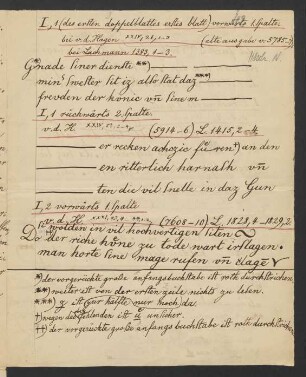 I, 1 (des ersten doppelblattes erstes blatt) vorwärts 1. spalte.
bei v. d. Hagen XXIV, (alte ausgabe v. 5785.
bei Lachmann 1383, 1–3.
Gnade siner dienste **)
min swester sit iz also stat daz
frevden der konic vn̄ sine m
I, 1 rückwärts 2. spalte.
v. d. H. (5914–6) L. 1415, 2–4
er recken achozic fu ren †) an den
en ritterlich harnash vn̄
ten die vil snelle in daz Gun
I, 2 vorwärts 1. spalte
v. d. H. (7608–10) L. 1828, 4–1829, 2
wolden in vil hochvertigen siten
Do der riche hone zu tode wart irslagen.
man horte sine mage rufen vn̄ clage
*) der vorgerückte große anfangsbuchstabe ist roth durchstrichen.
**) weiter ist von der ersten zeile nichts zu lesen.
***) g ist zur hälfte nur noch da
†) wegen des ist u unsicher.
††) der vorgerückte große anfangsbuchstabe ist roth durchstrichen